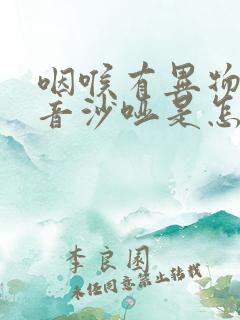 咽喉有异物
音沙哑是怎
李良国
未经同意禁止转载